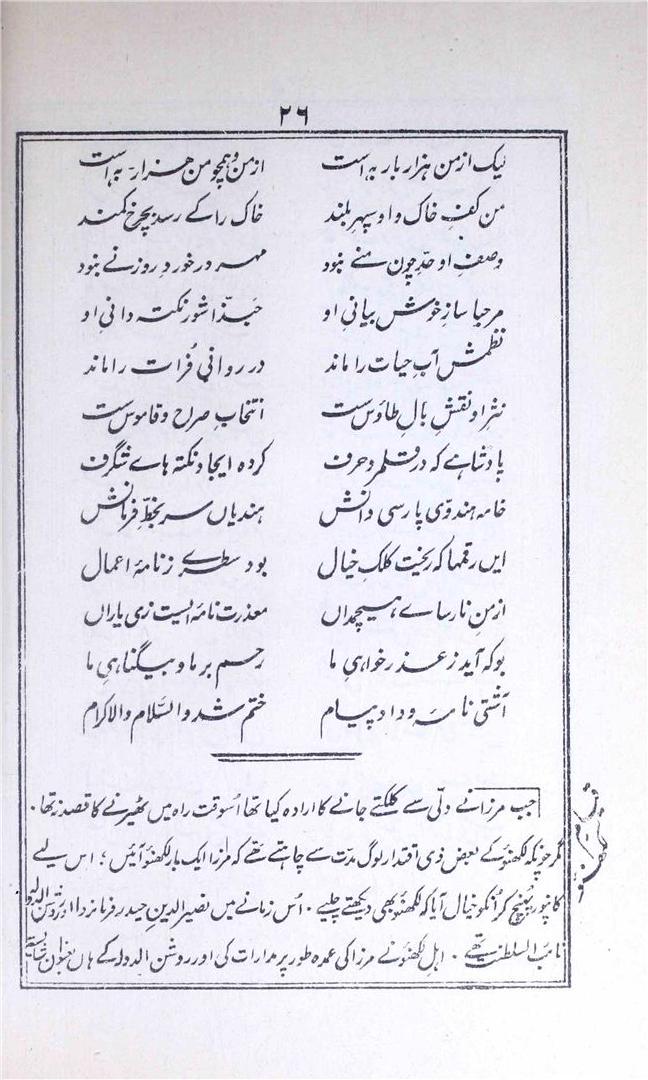 ۲۶
لیک از من ہزار بار بہ است از من و ہمچو من ہزار بہ است
من کفِ خاک و او سپہرِ بلند خاک را کے رسد بچرخ کمند
وصفِ او حدِّ چون منے نبود مہر در خوردِ روزنے نبود
مرحبا سازِ خوش بیانیِ او حبّذا شورِ نکتہ دانیِ او
نظمش آبِ حیات را ماند در روانی فُرات را ماند
نثرِ او نقشِ بالِ طاؤس ست انتخابِ صراح و قاموس ست
پادشاہے کہ در قلمروِ حرف کردہ ایجاد نکتہ ہاے شگرف
خامہ ہندوی پارسی دانش ہندیاں سر بخطِّ فرمانش
ایں رقمہا کہ ریخت کلکِ خیال بود سطرے ز نامۂ اعمال
از منِ نارساے ہیچمداں معذرت نامہ ایست زی یاراں
بو کہ آید ز عذر خواہیِ ما رحم بر ما و بیگناہیِ ما
آشتی نامۂ وداد پیام ختم شد والسّلام والاکرام
جب مرزا نے دلّی سے کلکتے جانے کا ارادہ کیا تھا اُسوقت راہ میں ٹھیرنے کا قصد نہ تھا۔
قیام لکھنؤ
مگر چونکہ لکھنؤ کے بعض ذی اقتدار لوگ مدّت سے چاہتے تھے کہ مرزا ایک بار لکھنؤ آئیں؛ اس لیے
کانپور پہنچ کر اُنکو خیال آیا کہ لکھنؤ بھی دیکھتے چلیے۔ اُس زمانے میں نصیر الدین حیدر فرمانروا اور روشن الدولہ
نائب السلطنت تھے۔ اہلِ لکھنؤ نے مرزا کی عمدہ طور پر مدارات کی اور روشن الدولہ کے ہاں بعنوان شایستہ